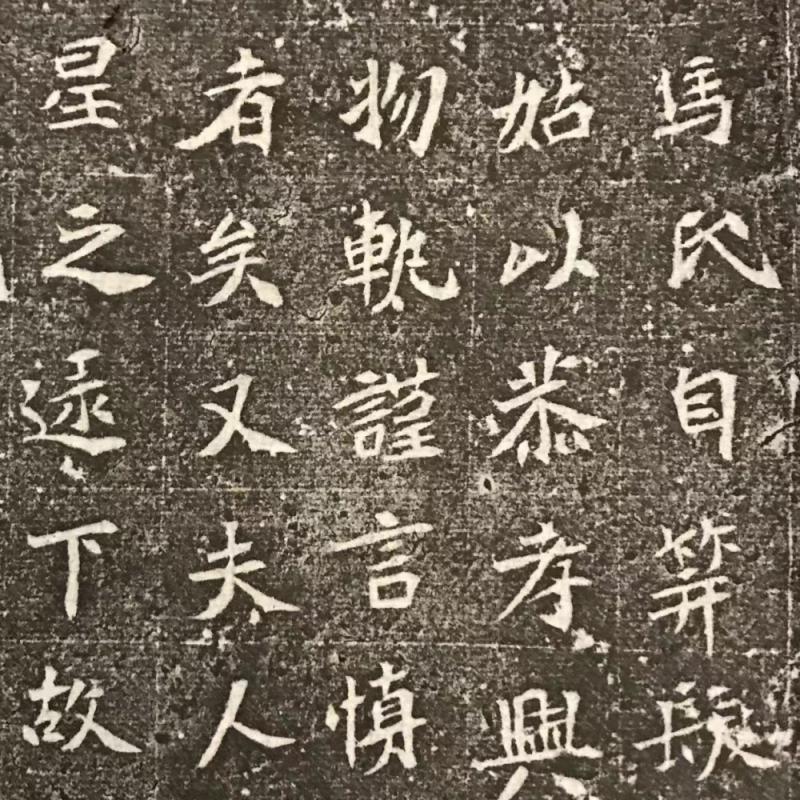 馬氏自笄髮
姑以恭孝興
物軌謹言慎
者矣又夫人
星之逮下故